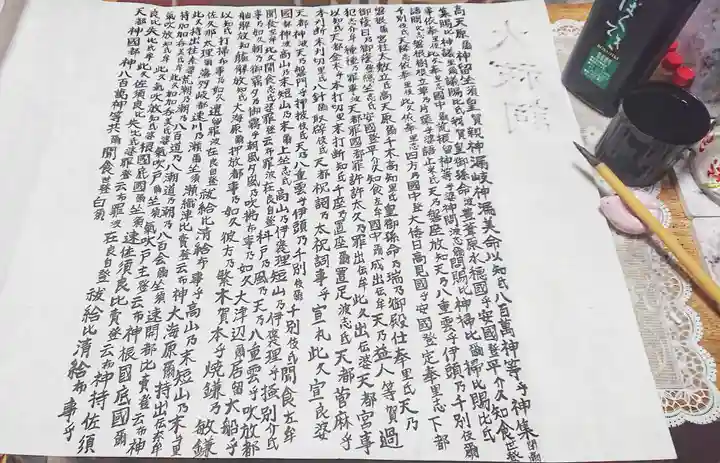 大祓詞
高天原爾神留坐須皇賀親神漏岐神漏美命以知氐八百萬神等乎神集閉爾
集賜比神議里爾議賜比氐我賀皇御孫命波豊葦原水穂國乎安國登平介久知食世登
事依奉里伎此久依奉里志國中爾荒振留神等乎婆神問波志爾問賜比神掃比爾掃比賜比氐
語問比志磐根樹根立草乃片葉乎母語止米氐天乃磐座放知天乃八重雲乎伊頭乃千別伎爾
千別伎氐天降志依奉里伎此久依奉里志四方乃國中登大倭日高見國乎安國登定奉里志下都
磐根爾宮柱太敷立氐高天原爾千木高知里氐皇御孫命乃瑞乃御殿仕奉里氐天乃
御蔭日乃御蔭登隠坐志氐安國登平介久知食左牟國中爾成出伝牟天乃益人等賀過
犯志介牟種種乃罪事波天都罪國都罪許許太久乃罪出伝牟此久出伝婆天都宮事
以知氐天都金木乎本打切里末打断知氐千座乃置座爾置足波志氐天都菅麻乎
本刈断末刈切里氐八針爾取辟伎氐天都祝詞乃太祝詞事乎宣礼 此久宣良婆
天都神波天乃磐門乎押披伎氐天乃八重雲乎伊頭乃千別伎爾千別伎氐聞食左牟
國都神波高山乃末短山乃末爾上坐志氐高山乃伊褒理短山乃伊褒理乎掻別介氐
聞食左牟此久聞食志氐婆罪登云布罪波在良自登科戸乃風乃天乃八重雲乎吹放都
事乃如久朝乃御霧夕乃御霧乎朝風夕風乃吹拂布事乃如久大津辺爾居留大船乎
舳解放知艫解放知氐大海原爾押放都事乃如久彼方乃繁木賀本乎焼鎌乃敏鎌
以知氐打掃布事乃如久遺留罪波在良自登祓給比清給布事乎高山乃末短山乃末与里
佐久那太理爾落多岐都速川乃瀬爾坐須瀬織津比賣登云布神大海原爾持出伝奈牟
此久持出往奈婆荒潮乃潮乃八百道乃八潮道乃潮乃八百会爾坐須速開都比賣登云布神
持加加呑美氐牟此久加加呑美氐婆氣吹戸爾坐須氣吹戸主登云布神根國底國爾
氣吹放知氐牟此久氣吹放知氐婆根國底國爾坐須速佐須良比賣登云布神持佐須
良比失比氐牟此久佐須良比失比氐婆罪登云布罪波在良自登祓給比清給布事乎
天都神國都神八百萬神等共爾聞食世登白須